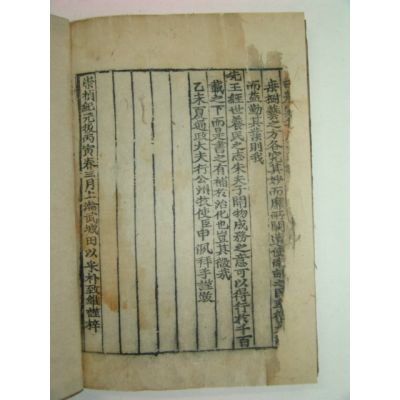 之方各究其妙而靡所闕遺使
而益勤其業則我
先王經世養民之志朱夫子開物成務之意可以得行於千百
載之下而是書之有補於治化也豈其微哉
乙未夏通政大夫行公州牧使臣申洬拜手謹跋
崇禎紀元後丙寅春三月上澣武城田以采朴致維謹梓